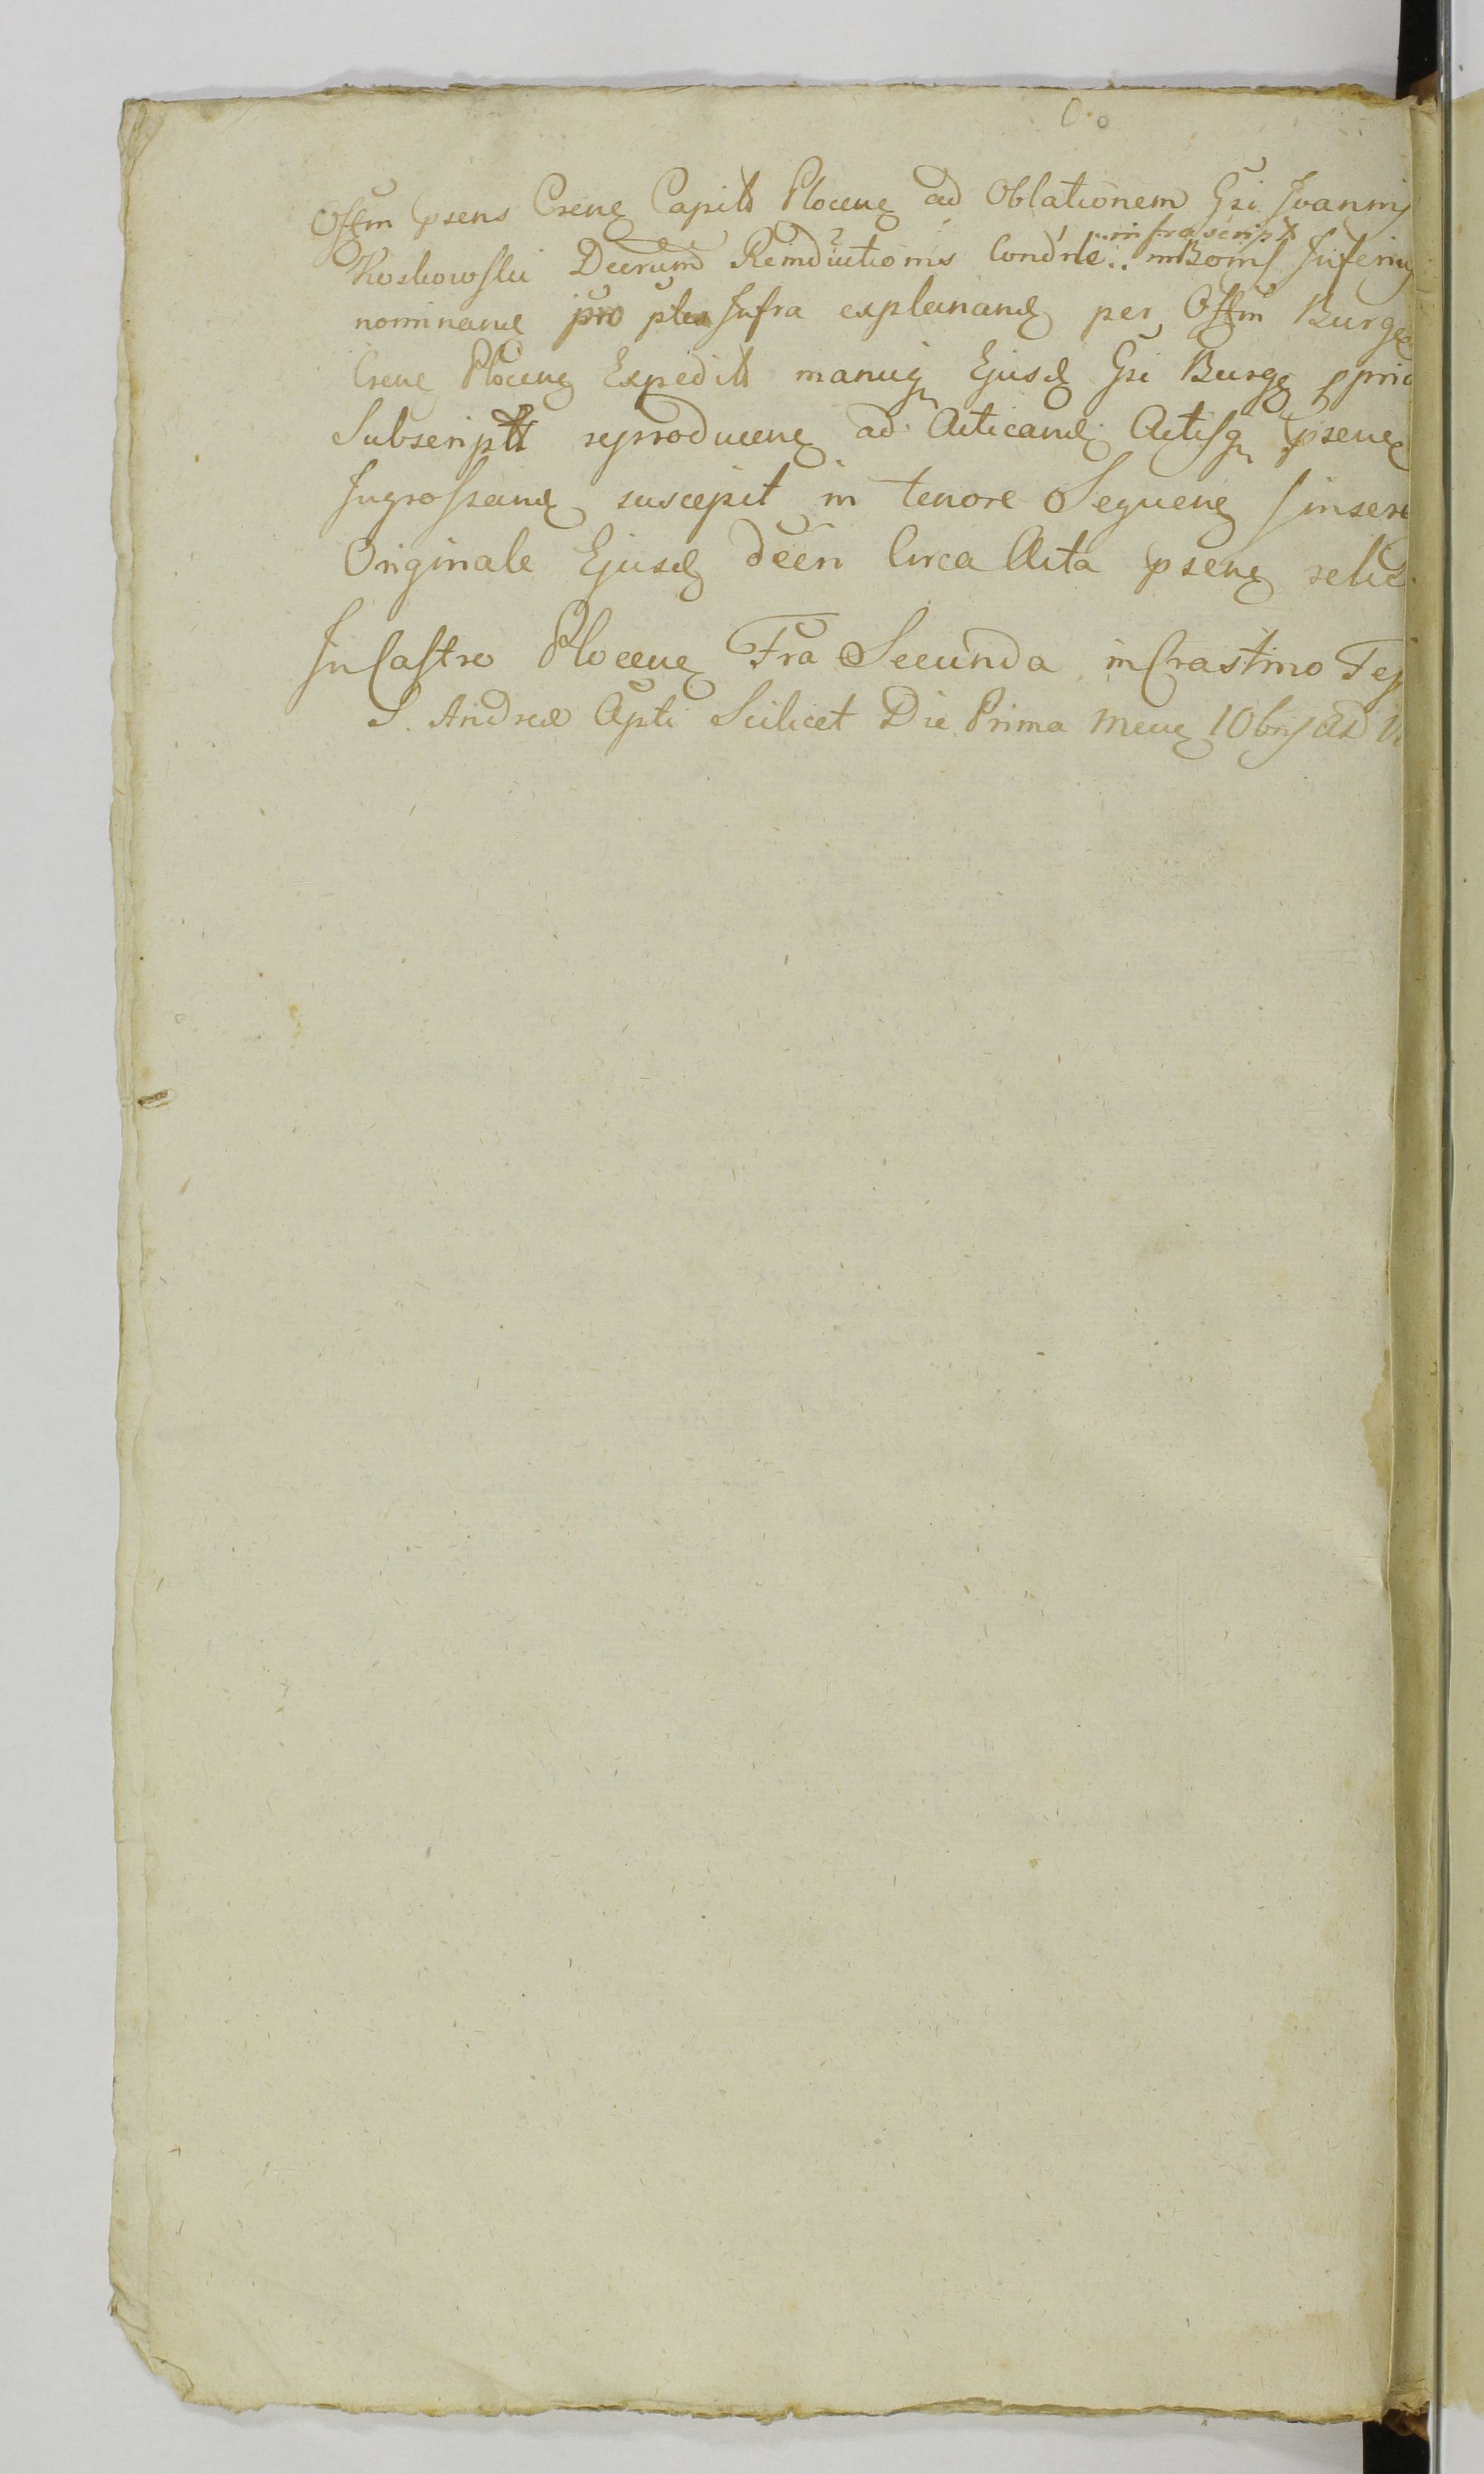 Offm psens Crseng Capitl Ploceng ad Oblationem Gsi Joannis
infrascript
Koskowski Decrum Reinductionis Condnle.. in Bonis Inferius
nominang pro ptes Infra explanand per Offm Burg
Crseng Ploceng Expeditt manuq Ejusd Gsi Burg ppria
Subscriptt reproduceng ad Acticand Actisq pseng
Ingrossand suscepit in tenore Sequeng
Originale Ejusd Decri Circa Acta pseng relic
In Castro Ploceng Fra Secunda in Crastino Fes
S. Andreæ Apli Scilicet Die Prima Meng 10bris AD